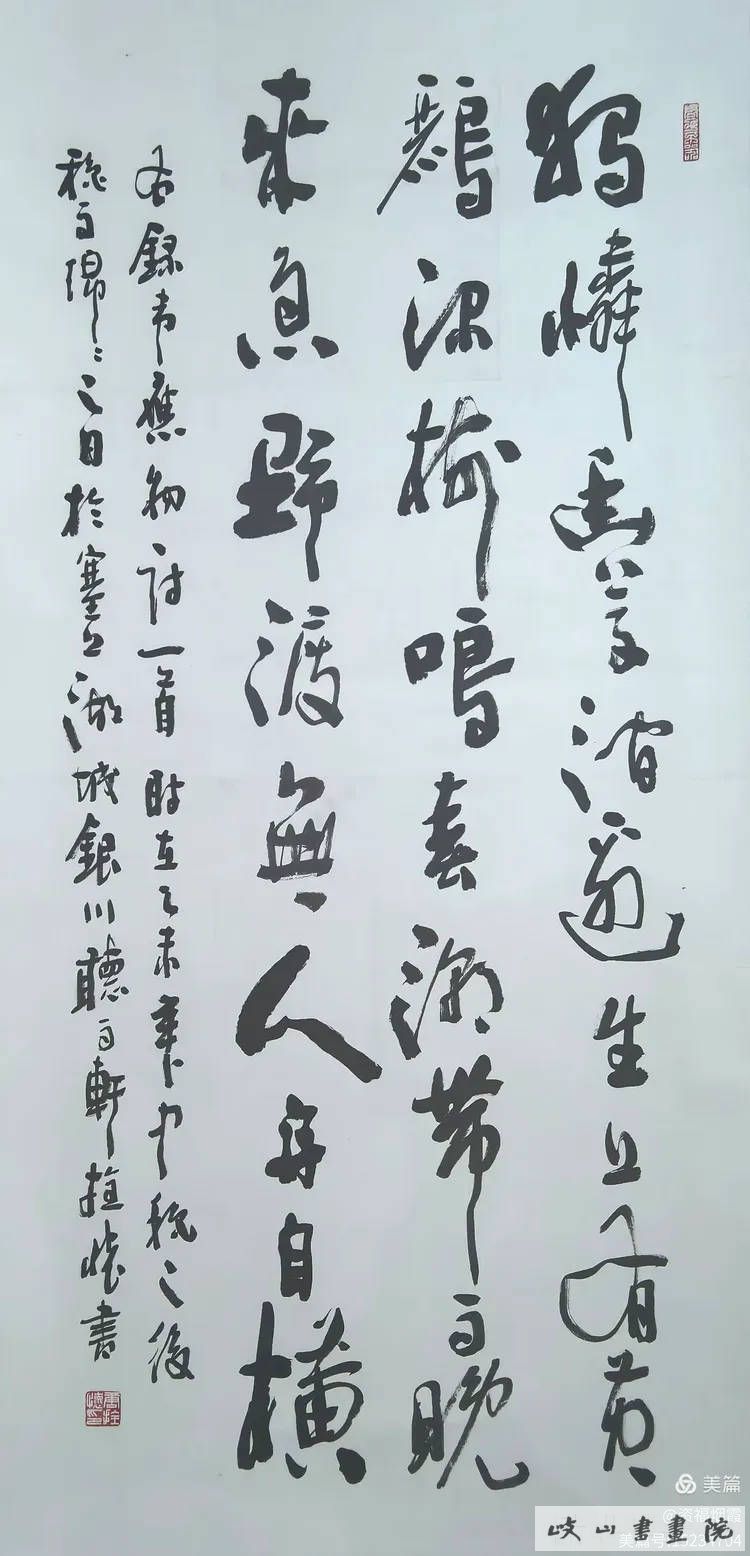 獨憐幽草澗邊生上有黃
鸝深樹鳴春潮帶雨晚
來急野渡無人舟自橫
右錄韋應物詩一首時在乙未年中秋之後
秋雨綿〻之日於塞上湖城銀川聽雨軒懷書
美篇
岐山書畫院